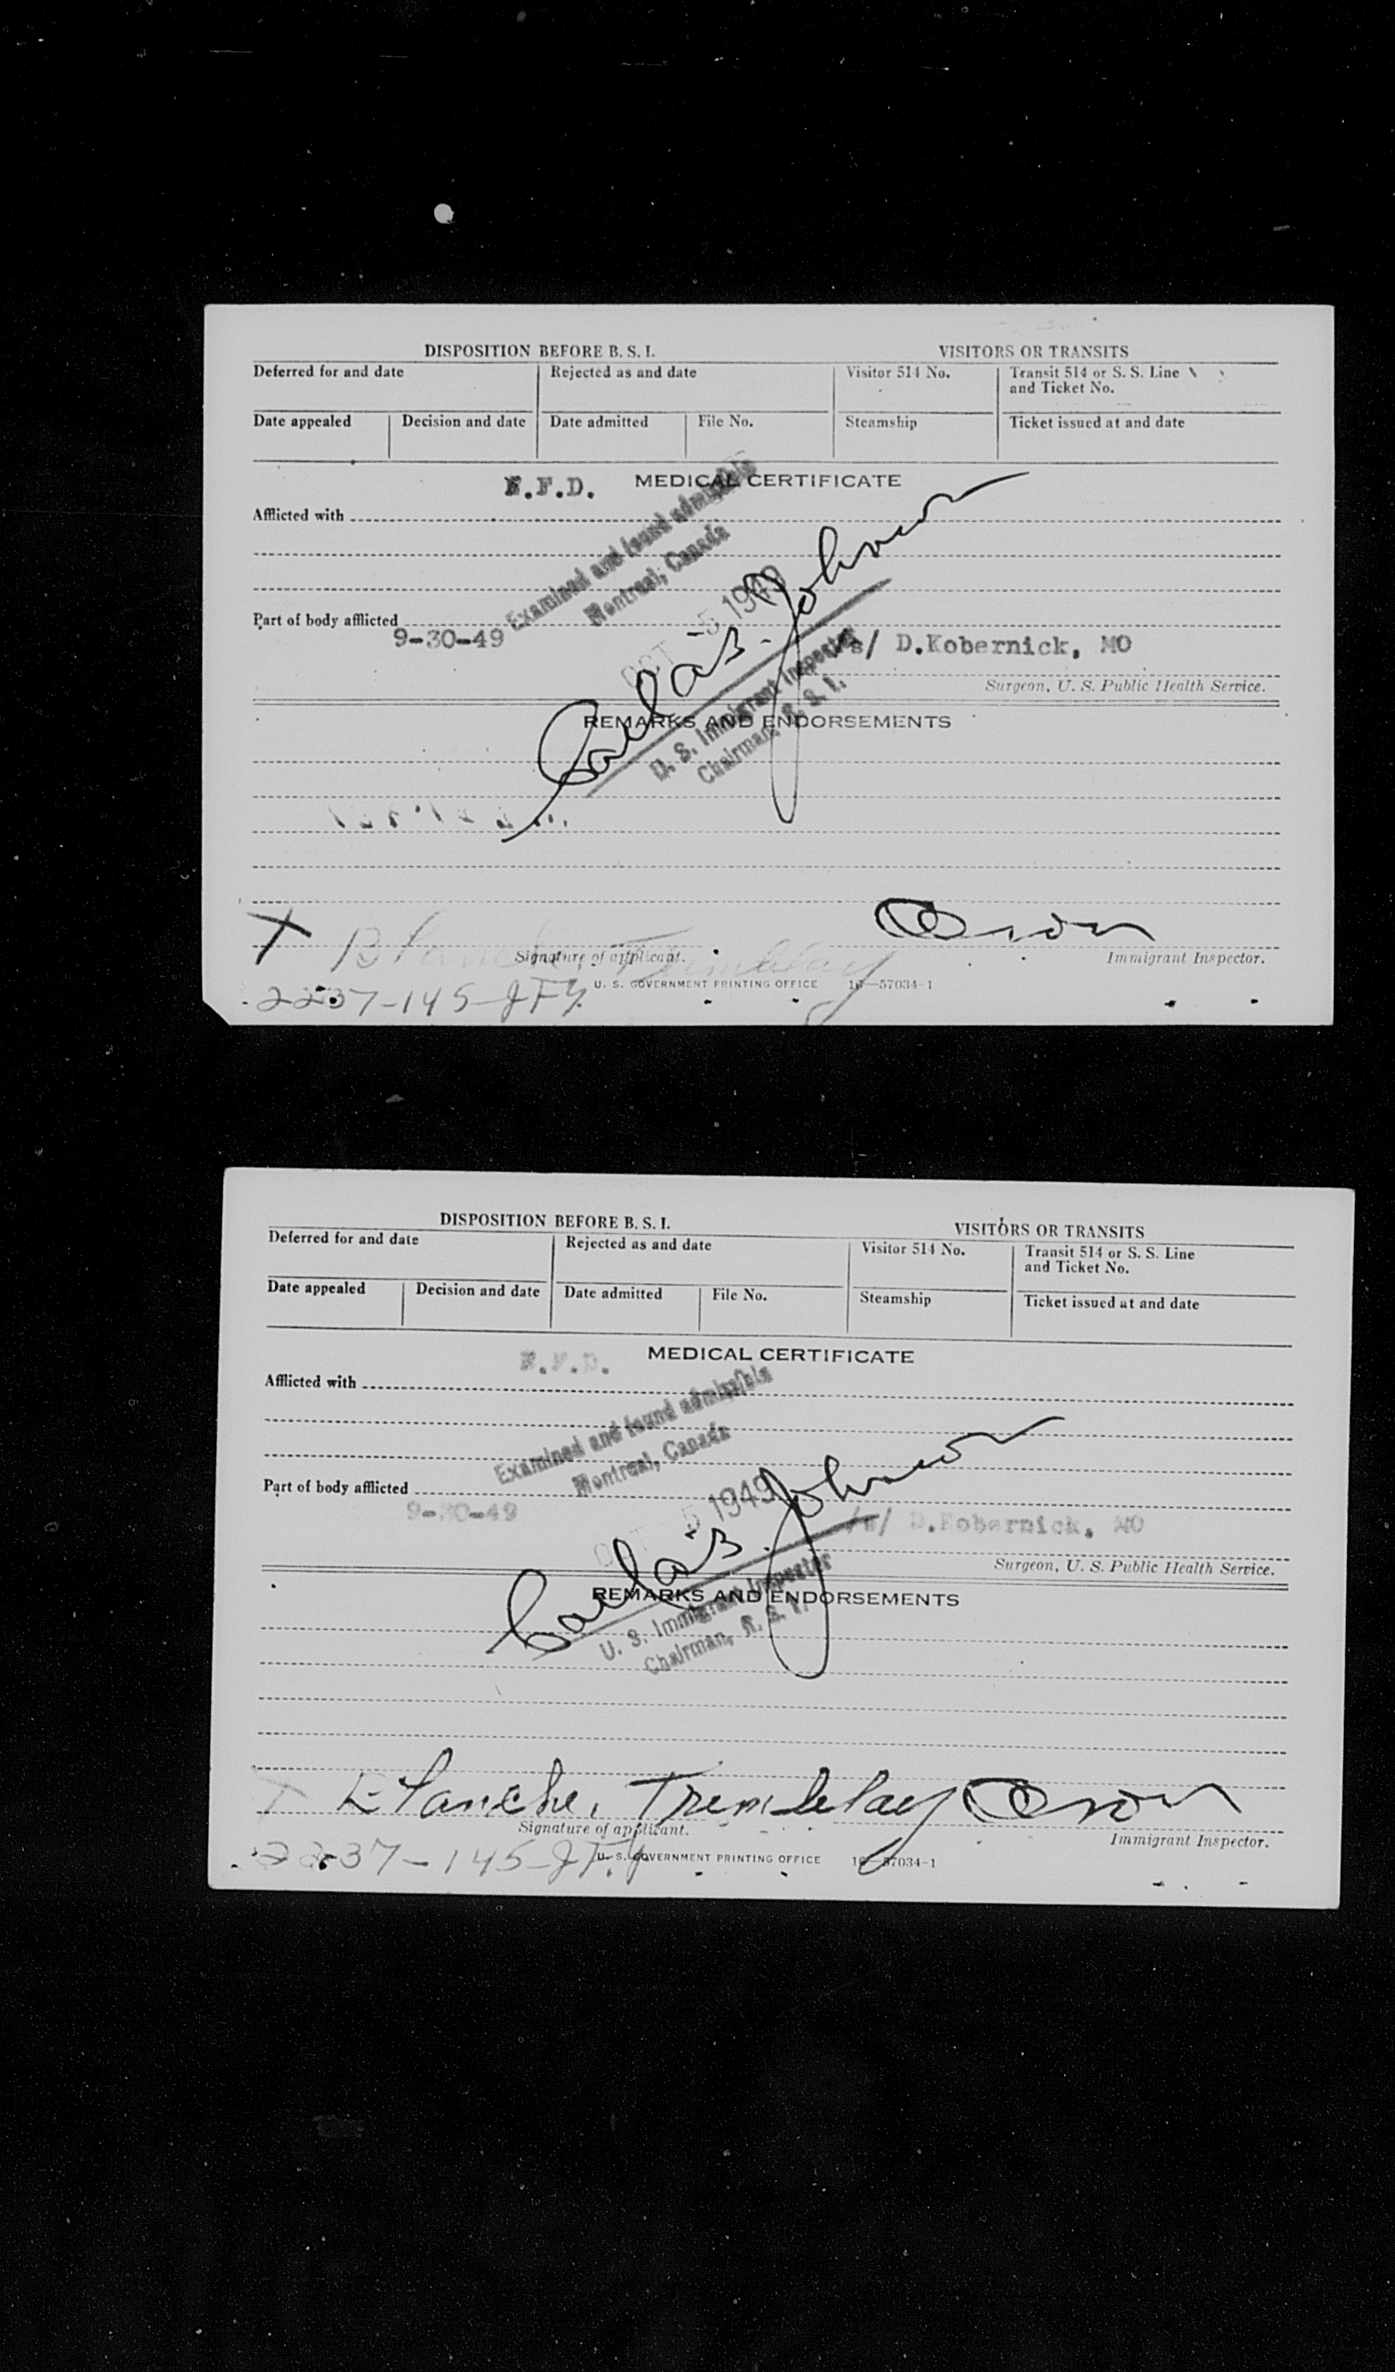 DISPOSITION BEFORE B. S. I. VISITORS OR TRANSITS
Deferred for and date Rejected as and date Visitor 514 No. Transit 514 or S. S. Line
and Ticket No.
Date appealed Decision and date Date admitted File No. Steamship Ticket issued at and date
N.F.D. MEDICAL CERTIFICATE
Afflicted with
Examined and found admissible
Montreal, Canada
OCT -5 1949
Part of body afflicted
9-30-49 /s/ D.Kobernick, MO
Surgeon, U. S. Public Health Service.
Johnson
U. S. Immigrant Inspector
Chairman, B. S. I.
REMARKS AND ENDORSEMENTS
X Blanche Tremblay
Signature of applicant. Immigrant Inspector.
2237-145-JFY U. S. GOVERNMENT PRINTING OFFICE 16—57034-1
DISPOSITION BEFORE B. S. I. VISITORS OR TRANSITS
Deferred for and date Rejected as and date Visitor 514 No. Transit 514 or S. S. Line
and Ticket No.
Date appealed Decision and date Date admitted File No. Steamship Ticket issued at and date
N.F.D. MEDICAL CERTIFICATE
Afflicted with
Examined and found admissible
Montreal, Canada
OCT -5 1949
Part of body afflicted
9-30-49 /s/ D.Kobernick, MO
Surgeon, U. S. Public Health Service.
Johnson
U. S. Immigrant Inspector
Chairman, B. S. I.
REMARKS AND ENDORSEMENTS
X Blanche Tremblay
Signature of applicant. Immigrant Inspector.
2237-145-JFY U. S. GOVERNMENT PRINTING OFFICE 16—57034-1